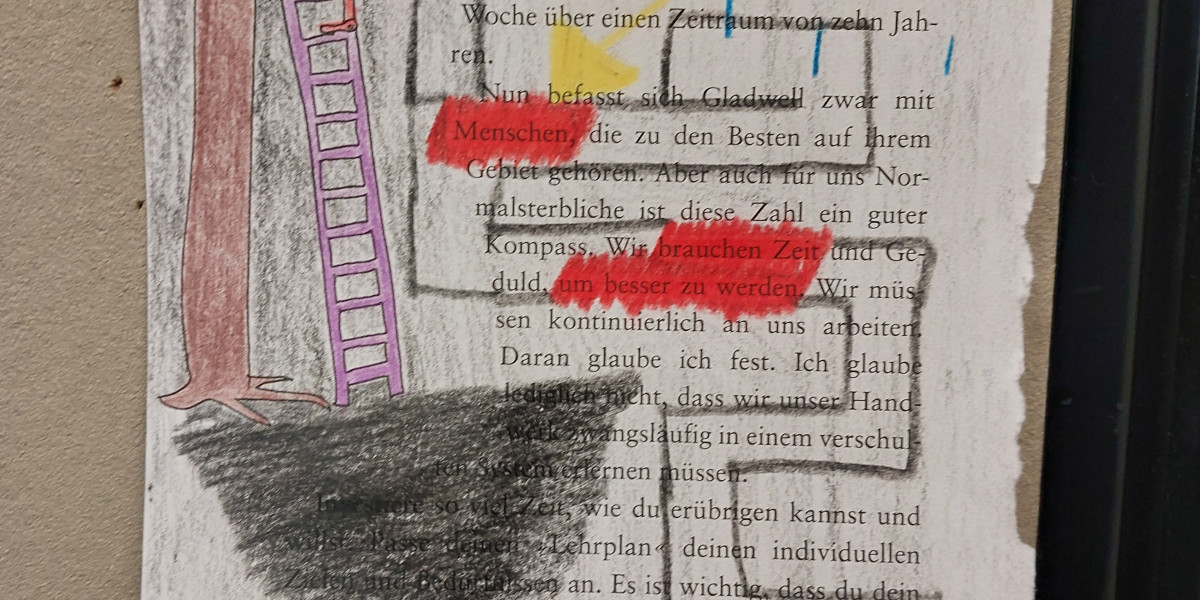 Woche über einen Zeitraum von zehn Jah-
ren.
Nun befasst sich Gladwell zwar mit
Menschen, die zu den Besten auf ihrem
Gebiet gehören. Aber auch für uns Nor-
malsterbliche ist diese Zahl ein guter
Kompass. Wir brauchen Zeit und Ge-
duld, um besser zu werden. Wir müs-
sen kontinuierlich an uns arbeiten.
Daran glaube ich fest. Ich glaube
lediglich nicht, dass wir unser Hand-
werk zwangsläufig in einem verschul-
ten System erlernen müssen.
Investiere so viel Zeit, wie du erübrigen kannst und
willst. Passe deinen »Lehrplan« deinen individuellen
Zielen und Bedürfnissen an. Es ist wichtig, dass du dein